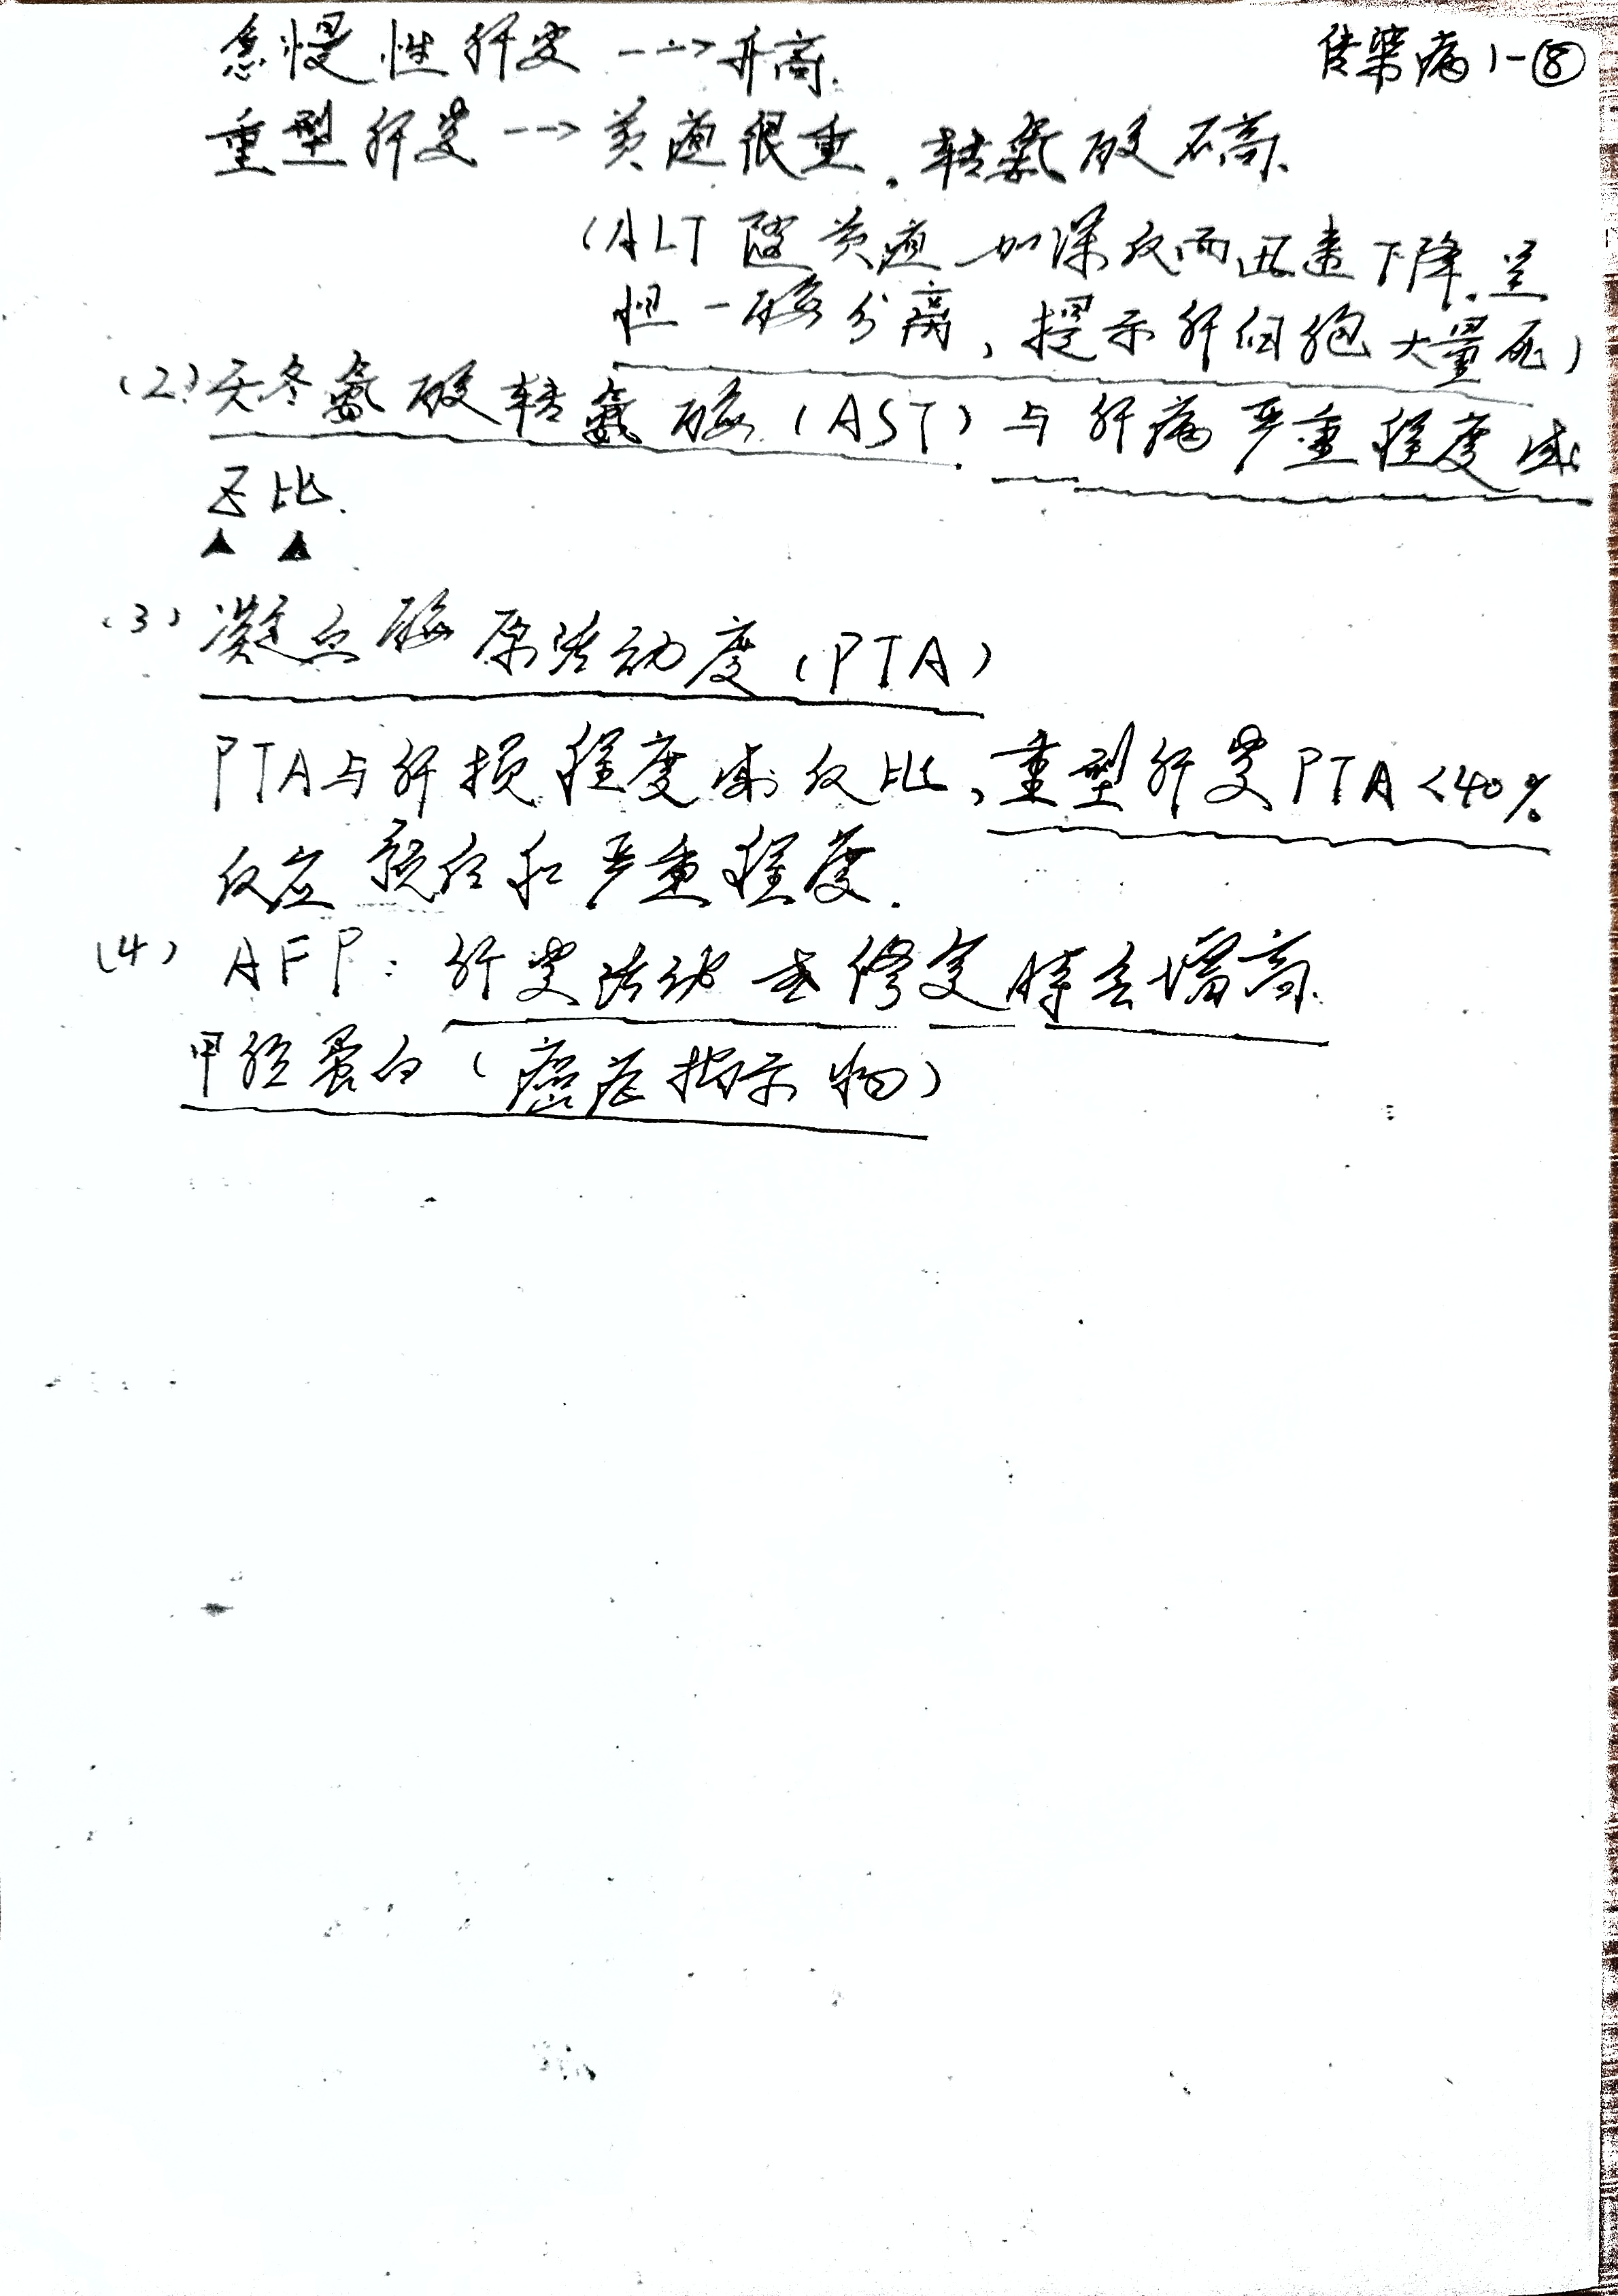 传染病1-⑧
急慢性肝炎 --→升高.
重型肝炎 --→ 黄疸很重. 转氨酸不高.
(ALT随黄疸加深反而迅速下降.呈
胆一酶分离, 提示肝细胞大量死)
(2)天冬氨酸转氨酶(AST)与肝病严重程度成
正比.
▲ ▲
(3) 凝血酶原活动度(PTA)
PTA与肝损程度成反比,重型肝炎PTA<40%
反应预后和严重程度.
(4) AFP: 肝炎活动或修复时会增高.
甲胎蛋白(癌症指示物)